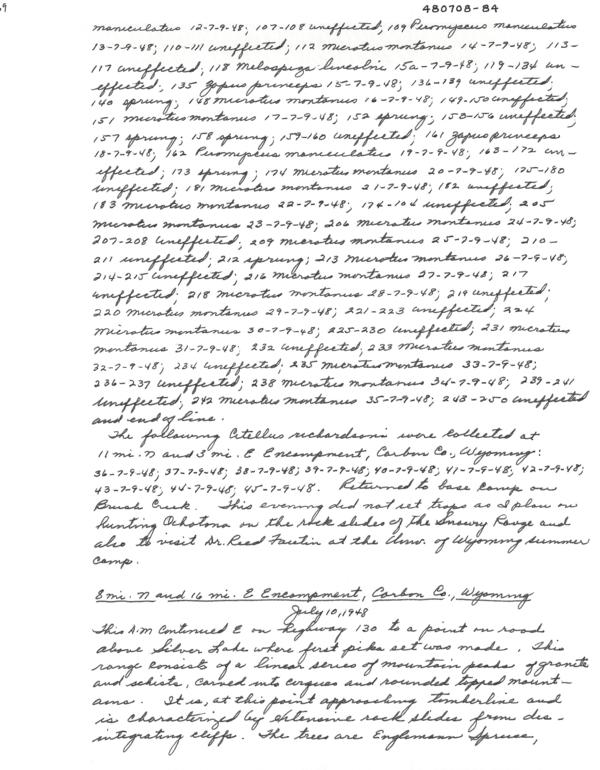 480708-84
maniculatus 12-7-9-48; 107-108 uneffected; 109 Peromyscus maniculatus
13-7-9-48; 110-111 uneffected; 112 microtus montanus 14-7-9-48; 113-
117 uneffected; 118 Melospiza lincolnii 15a-7-9-48; 119-134 un-
effected; 135 Zapus princeps 15-7-9-48; 136-139 uneffected;
140 sprung; 148 microtus montanus 16-7-9-48; 149-150 uneffected;
151 microtus montanus 17-7-9-48; 152 sprung; 150-156 uneffected;
157 sprung; 158 sprung; 159-160 uneffected; 161 Zapus princeps
18-7-9-48; 162 Peromyscus maniculatus 19-7-9-48; 163-172 un-
effected; 173 sprung; 174 microtus montanus 20-7-9-48; 175-180
uneffected; 181 microtus montanus 21-7-9-48; 182 uneffected;
183 microtus montanus 22-7-9-48; 174-104 uneffected; 205
microtus montanus 23-7-9-48; 206 microtus montanus 24-7-9-48;
207-208 uneffected; 209 microtus montanus 25-7-9-48; 210-
211 uneffected; 212 sprung; 213 microtus montanus 26-7-9-48;
214-215 uneffected; 216 microtus montanus 27-7-9-48; 217
uneffected; 218 microtus montanus 28-7-9-48; 219 uneffected;
220 microtus montanus 29-7-9-48; 221-223 uneffected; 224
microtus montanus 30-7-9-48; 225-230 uneffected; 231 microtus
montanus 31-7-9-48; 232 uneffected; 233 microtus montanus
32-7-9-48; 234 uneffected; 235 microtus montanus 33-7-9-48;
236-237 uneffected; 238 microtus montanus 34-7-9-48; 239-241
uneffected; 242 microtus montanus 35-7-9-48; 243-250 uneffected
and end of line.
The following Citellus richardsonii were collected at
11 mi. N and 3 mi. E Encampment, Carbon Co., Wyoming:
36-7-9-48; 37-7-9-48; 38-7-9-48; 39-7-9-48; 40-7-9-48; 41-7-9-48; 42-7-9-48;
43-7-9-48; 44-7-9-48; 45-7-9-48. Returned to base camp on
Brush Creek. This evening did not set traps as I plan on
hunting Ochotona on the rock slides of the Snowy Range and
also to visit Dr. Reed Fautin at the Univ. of Wyoming summer
camp.
8 mi. N and 16 mi. E Encampment, Carbon Co., Wyoming
July 10, 1948
This A.M continued E on highway 130 to a point on road
above Silver Lake where first pika set was made. This
range consists of a linear series of mountain peaks of granite
and schists, carved into cirques and rounded topped mount-
ains. It is, at this point approaching timberline and
is characterized by extensive rock slides from dis-
integrating cliffs. The trees are Englemann Spruce,